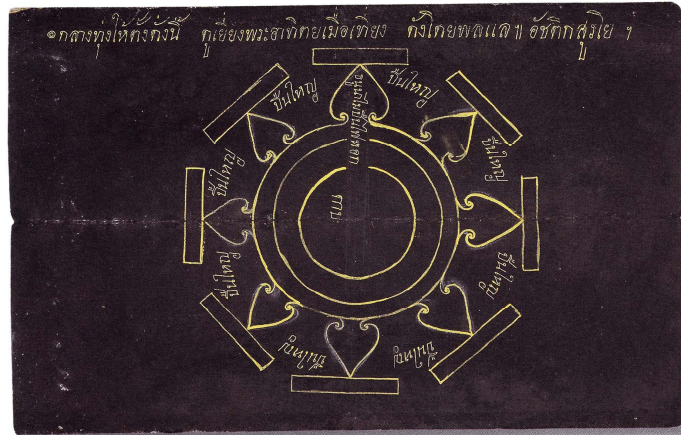 ๏ กลางทุ่งให้ตั้งดั่งนี้ ดูเยี่ยงพระอาทิตยเมื่อเที่ยง ดั่งไดยพลแล ฯ อัชติกสุริเย ฯ
ปืนใหญ่
ปืนใหญ่
ปืนใหญ่
ปืนใหญ่
ปืนใหญ่
ปืนใหญ่
ปืนใหญ่
ปืนใหญ่